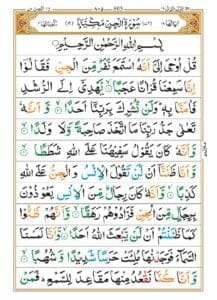 سُوْرَةُ الْجِنِّ مَكِّيَّةٌ
بِسْمِ اللّٰهِ الرَّحْمٰنِ الرَّحِيْمِ
قُلْ اُوْحِيَ اِلَيَّ اَنَّهُ اسْتَمَعَ نَفَرٌ مِّنَ الْجِنِّ فَقَالُوْۤا
اِنَّا سَمِعْنَا قُرْاٰنًا عَجَبًا ۙ۝ يَّهْدِيْۤ اِلَى الرُّشْدِ
فَاٰمَنَّا بِهٖ ؕ وَلَنْ نُّشْرِكَ بِرَبِّنَاۤ اَحَدًا ۙ۝ وَّاَنَّهٗ
تَعٰلٰى جَدُّ رَبِّنَا مَا اتَّخَذَ صَاحِبَةً وَّلَا وَلَدًا ۙ۝
وَّاَنَّهٗ كَانَ يَقُوْلُ سَفِيْهُنَا عَلَى اللّٰهِ شَطَطًا ۙ۝
وَّاَنَّا ظَنَنَّاۤ اَنْ لَّنْ تَقُوْلَ الْاِنْسُ وَالْجِنُّ عَلَى اللّٰهِ كَذِبًا ۙ۝
وَّاَنَّهٗ كَانَ رِجَالٌ مِّنَ الْاِنْسِ يَعُوْذُوْنَ
بِرِجَالٍ مِّنَ الْجِنِّ فَزَادُوْهُمْ رَهَقًا ۙ۝ وَّاَنَّهُمْ ظَنُّوْا
كَمَا ظَنَنْتُمْ اَنْ لَّنْ يَّبْعَثَ اللّٰهُ اَحَدًا ۙ۝ وَّاَنَّا لَمَسْنَا
السَّمَآءَ فَوَجَدْنٰهَا مُلِئَتْ حَرَسًا شَدِيْدًا وَّشُهُبًا ۙ۝
وَّاَنَّا كُنَّا نَقْعُدُ مِنْهَا مَقَاعِدَ لِلسَّمْعِ ؕ فَمَنْ